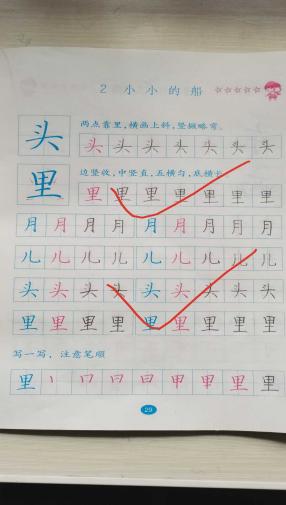 2 小小的船 ☆☆☆☆☆
头
两点靠里，横画上斜，竖撇略弯。
头 头 头 头 头 头 头
里
边竖收，中竖直，五横匀，底横长
里 里 里 里 里 里 里
月 月 月 月 月 月 月 月 月
儿 儿 儿 儿 儿 儿 儿 儿 儿
头 头 头 头 头 头 头 头 头
里 里 里 里 里 里 里 里 里
写一写，注意笔顺
里 丨 冂 日 甲 里 里
29